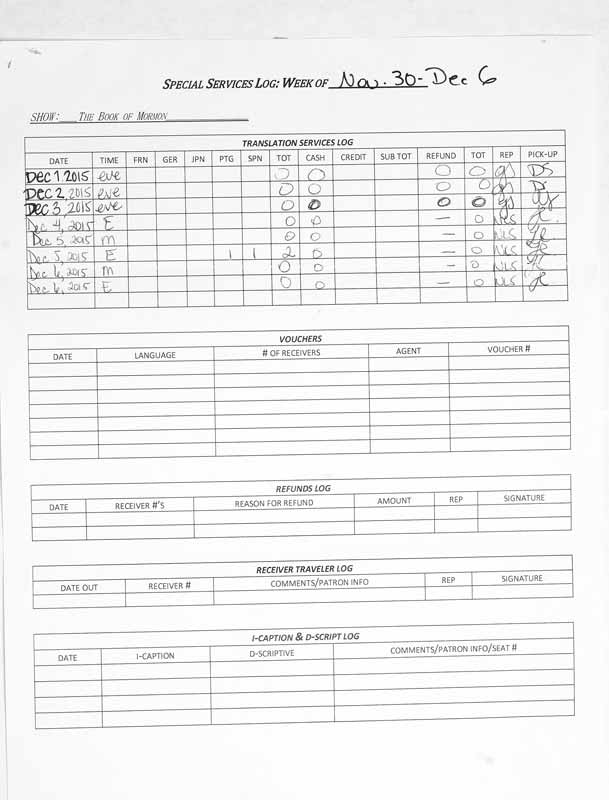 SPECIAL SERVICES LOG: WEEK OF Nov. 30 - Dec 6
SHOW: THE BOOK OF MORMON
TRANSLATION SERVICES LOG
DATE TIME FRN GER JPN PTG SPN TOT CASH CREDIT SUB TOT REFUND TOT REP PICK-UP
Dec 1 2015 eve 0 0 0 0 DS
Dec 2, 2015 eve 0 0 0 0
Dec 3, 2015 eve 0 0 0 0
Dec 4, 2015 E 0 0 — 0 NLS
Dec 5, 2015 m 0 0 — 0 NLS
Dec 5, 2015 E 1 1 2 0 — 0 NLS
Dec 6, 2015 m 0 0 — 0 NLS
Dec 6, 2015 E 0 0 — 0 NLS
VOUCHERS
DATE LANGUAGE # OF RECEIVERS AGENT VOUCHER #
REFUNDS LOG
DATE RECEIVER #'S REASON FOR REFUND AMOUNT REP SIGNATURE
RECEIVER TRAVELER LOG
DATE OUT RECEIVER # COMMENTS/PATRON INFO REP SIGNATURE
I-CAPTION & D-SCRIPT LOG
DATE I-CAPTION D-SCRIPTIVE COMMENTS/PATRON INFO/SEAT #